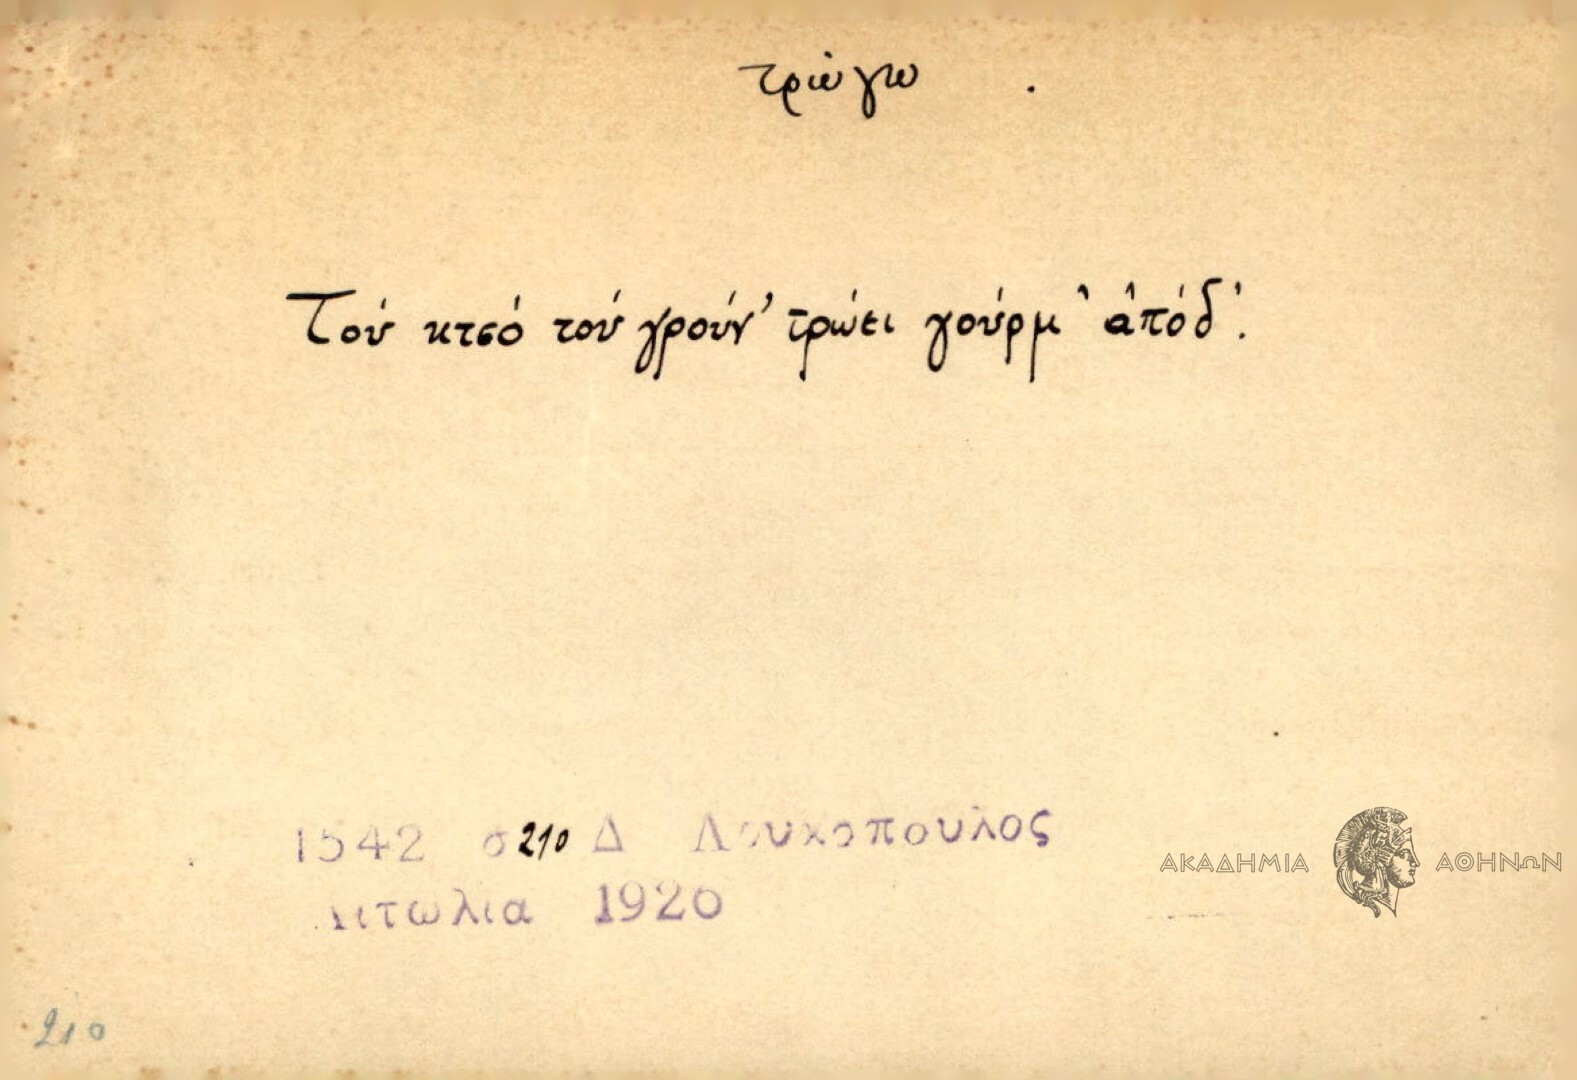 τρώγω
Τού κτσό τού γρούν' τρώει γούρμ' ἀπόδ'.
1542 σ 210 Δ Λουκοπουλος
Αιτωλια 1920
ΑΚΑΔΗΜΙΑ ΑΘΗΝΩΝ
210